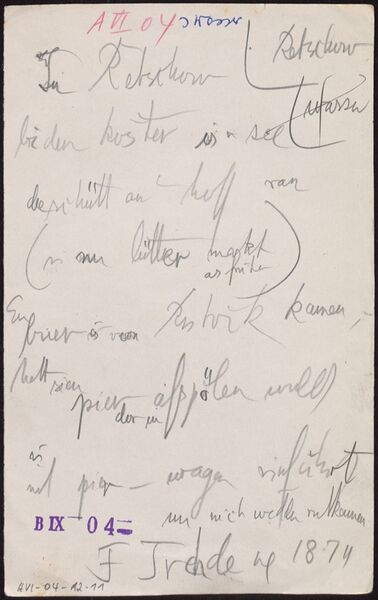 A VI 04 
In Retschow
Retschow
bi den koster is n see
deeschütt an hoff ran
(is nu lütter markt
as früher)
En buer is von Rostock kamen,
hett sien pier afspölen wullt
der in
is mit pier – wagen rinführt
un nich wedder rutkamen
B IX 04
F Trehde
18.74
AVI-04-12-11